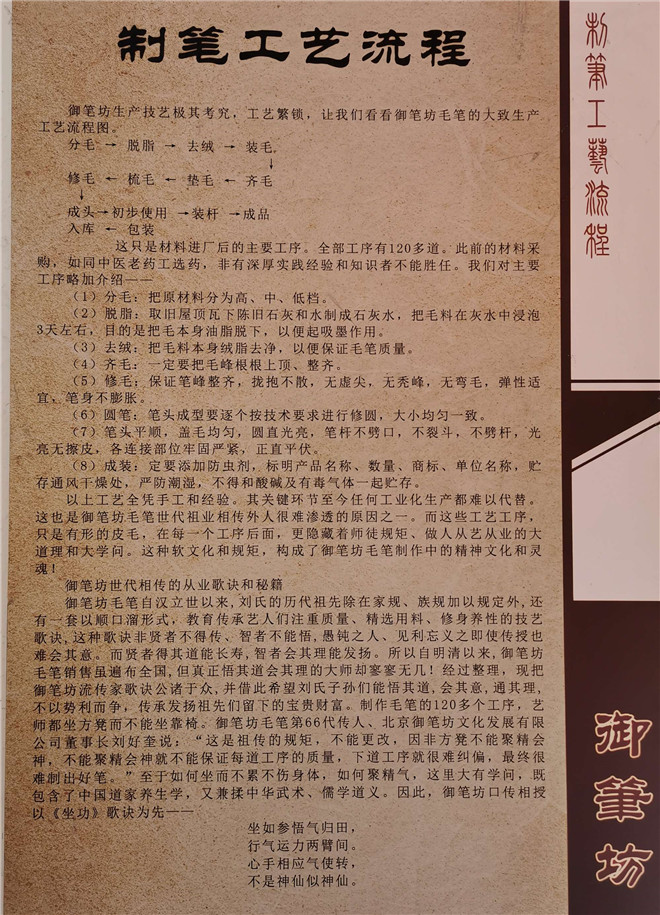 制笔工艺流程
御笔坊生产技艺极其考究，工艺繁锁，让我们看看御笔坊毛笔的大致生产
工艺流程图。
分毛 → 脱脂 → 去绒 → 装毛
↓
修毛 ← 梳毛 ← 垫毛 ← 齐毛
↓
成头→初步使用 →装杆 →成品
入库 ← 包装
这只是材料进厂后的主要工序。全部工序有120多道。此前的材料采
购，如同中医老药工选药，非有深厚实践经验和知识者不能胜任。我们对主要
工序略加介绍——
（1）分毛：把原材料分为高、中、低档。
（2）脱脂：取旧屋顶瓦下陈旧石灰和水制成石灰水，把毛料在灰水中浸泡
3天左右，目的是把毛本身油脂脱下，以便起吸墨作用。
（3）去绒：把毛料本身绒脂去净，以便保证毛笔质量。
（4）齐毛：一定要把毛峰根根上顶、整齐。
（5）修毛：保证笔峰整齐，拢抱不散，无虚尖，无秃峰，无弯毛，弹性适
宜、笔身不膨胀。
（6）圆笔：笔头成型要逐个按技术要求进行修圆，大小均匀一致。
（7）笔头平顺，盖毛均匀，圆直光亮，笔杆不劈口，不裂斗，不劈杆，光
亮无擦皮，各连接部位牢固严紧，正直平伏。
（8）成装：定要添加防虫剂，标明产品名称、数量、商标、单位名称，贮
存通风干燥处，严防潮湿，不得和酸碱及有毒气体一起贮存。
以上工艺全凭手工和经验。其关键环节至今任何工业化生产都难以代替。
这也是御笔坊毛笔世代祖业相传外人很难渗透的原因之一。而这些工艺工序，
只是有形的皮毛，在每一个工序后面，更隐藏着师徒规矩、做人从艺从业的大
道理和大学问。这种软文化和规矩，构成了御笔坊毛笔制作中的精神文化和灵
魂！
御笔坊世代相传的从业歌诀和秘籍
御笔坊毛笔自汉立世以来,刘氏的历代祖先除在家规、族规加以规定外,还
有一套以顺口溜形式，教育传承艺人们注重质量、精选用料、修身养性的技艺
歌诀,这种歌诀非贤者不得传、智者不能悟,愚钝之人、见利忘义之即使传授也
难会其意。而贤者得其道能长寿,智者会其理能发扬。所以自明清以来,御笔坊
毛笔销售虽遍布全国,但真正悟其道会其理的大师却寥寥无几！经过整理，现把
御笔坊流传家歌诀公诸于众,并借此希望刘氏子孙们能悟其道,会其意,通其理,
不以势利而争，传承发扬祖先们留下的宝贵财富。制作毛笔的120多个工序，艺
师都坐方凳而不能坐靠椅。御笔坊毛笔第66代传人、北京御笔坊文化发展有限
公司董事长刘好奎说：“这是祖传的规矩，不能更改，因非方凳不能聚精会
神，不能聚精会神就不能保证每道工序的质量，下道工序就很难纠偏，最终很
难制出好笔。”至于如何坐而不累不伤身体，如何聚精气，这里大有学问，既
包含了中国道家养生学，又兼揉中华武术、儒学道义。因此，御笔坊口传相授
以《坐功》歌诀为先——
坐如参悟气归田，
行气运力两臂间。
心手相应气使转，
不是神仙似神仙。
制筆工藝流程
御筆坊